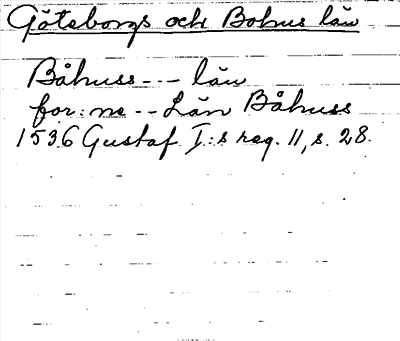 Göteborgs och Bohus län
Båhuss--- län
for: ne -- Län Båhuss
1536 Gustaf I:s reg. 11, s. 28.